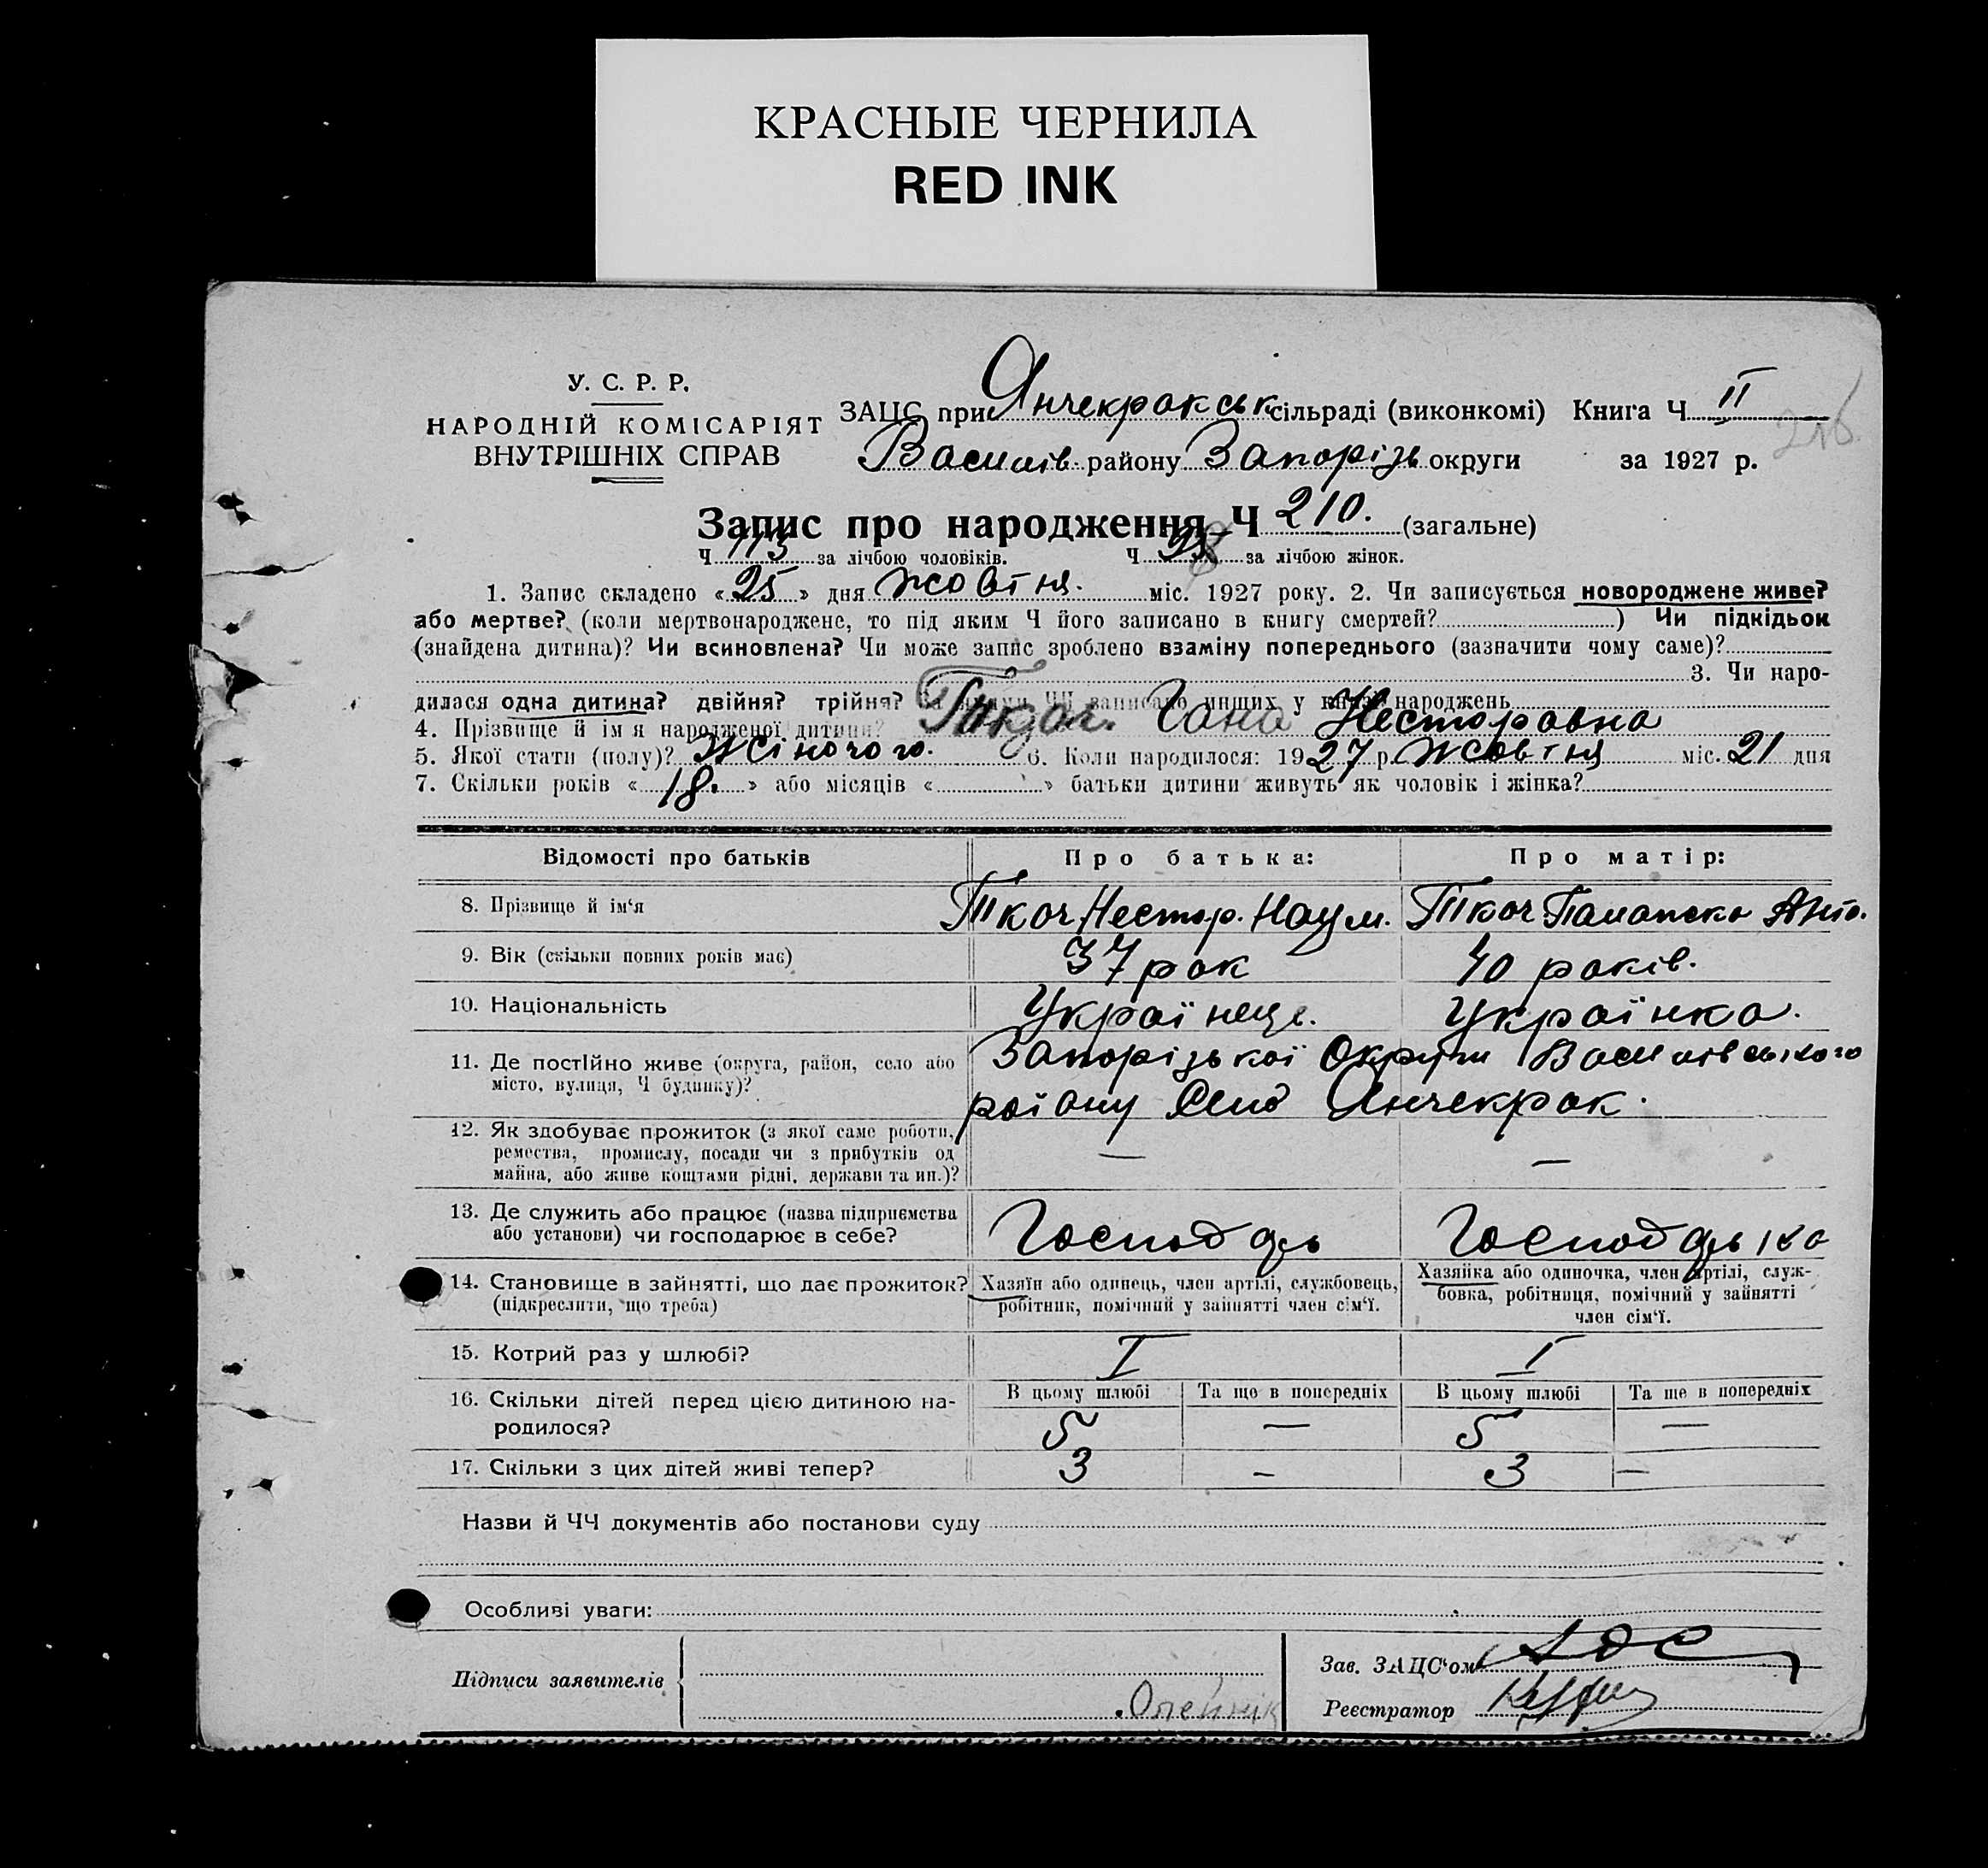 КРАСНЫЕ ЧЕРНИЛА
RED INK
У. С. Р. Р.
НАРОДНІЙ КОМІСАРІЯТ
ВНУТРІШНІХ СПРАВ
ЗАЦС при Янчекракськ сільраді (виконкомі) Книга Ч II
Василів. району Запорізь округи за 1927 р.
Запис про народження Ч 210. (загальне)
Ч 113 за лічбою чоловіків. Ч за лічбою жінок.
1. Запис складено « 25 » дня жовтня. міс. 1927 року. 2. Чи записується новороджене живе?
або мертве? (коли мертвонароджене, то під яким Ч його записано в книгу смертей? ) Чи підкідьок
(знайдена дитина)? Чи всиновлена? Чи може запис зроблено взаміну попереднього (зазначити чому саме)?
3. Чи наро-
дилася одна дитина? двійня? трійня? ЧЧ записано инших у книзі народжень
4. Прізвище й ім'я народженої дитини? Гана Несторовна
5. Якої стати (полу)? Жіночого. 6. Коли народилося: 1927 р. жовтня міс. 21 дня
7. Скільки років « 18. » або місяців « » батьки дитини живуть як чоловік і жінка?
Відомості про батьків Про батька: Про матір:
8. Прізвище й ім'я Ткач Нестор. Наум. Ткач Палажка Анто.
9. Вік (скільки повних років має) 37 рок 40 років.
10. Національність Українець. Українка.
11. Де постійно живе (округа, район, село або Запорізької Округи Василівського
місто, вулиця, Ч будинку)? району Село Янчекрак.
12. Як здобуває прожиток (з якої саме роботи, — —
ремества, промислу, посади чи з прибутків од
майна, або живе коштами рідні, держави та ин.)?
13. Де служить або працює (назва підприємства Господарь Господарька
або установи) чи господарює в себе?
14. Становище в зайнятті, що дає прожиток? Хазяїн або одинець, член артілі, службовець, Хазяйка або одиночка, член артілі, служ-
(підкреслити, що треба) робітник, помічний у зайнятті член сім'ї. бовка, робітниця, помічний у зайнятті
член сім'ї.
15. Котрий раз у шлюбі? I I
16. Скільки дітей перед цією дитиною на- В цьому шлюбі Та ще в попередніх В цьому шлюбі Та ще в попередніх
родилося? 5 — 5 —
17. Скільки з цих дітей живі тепер? 3 — 3 —
Назви й ЧЧ документів або постанови суду
Особливі уваги:
Підписи заявителів Зав. ЗАЦС'ом
Олейник Реєстратор